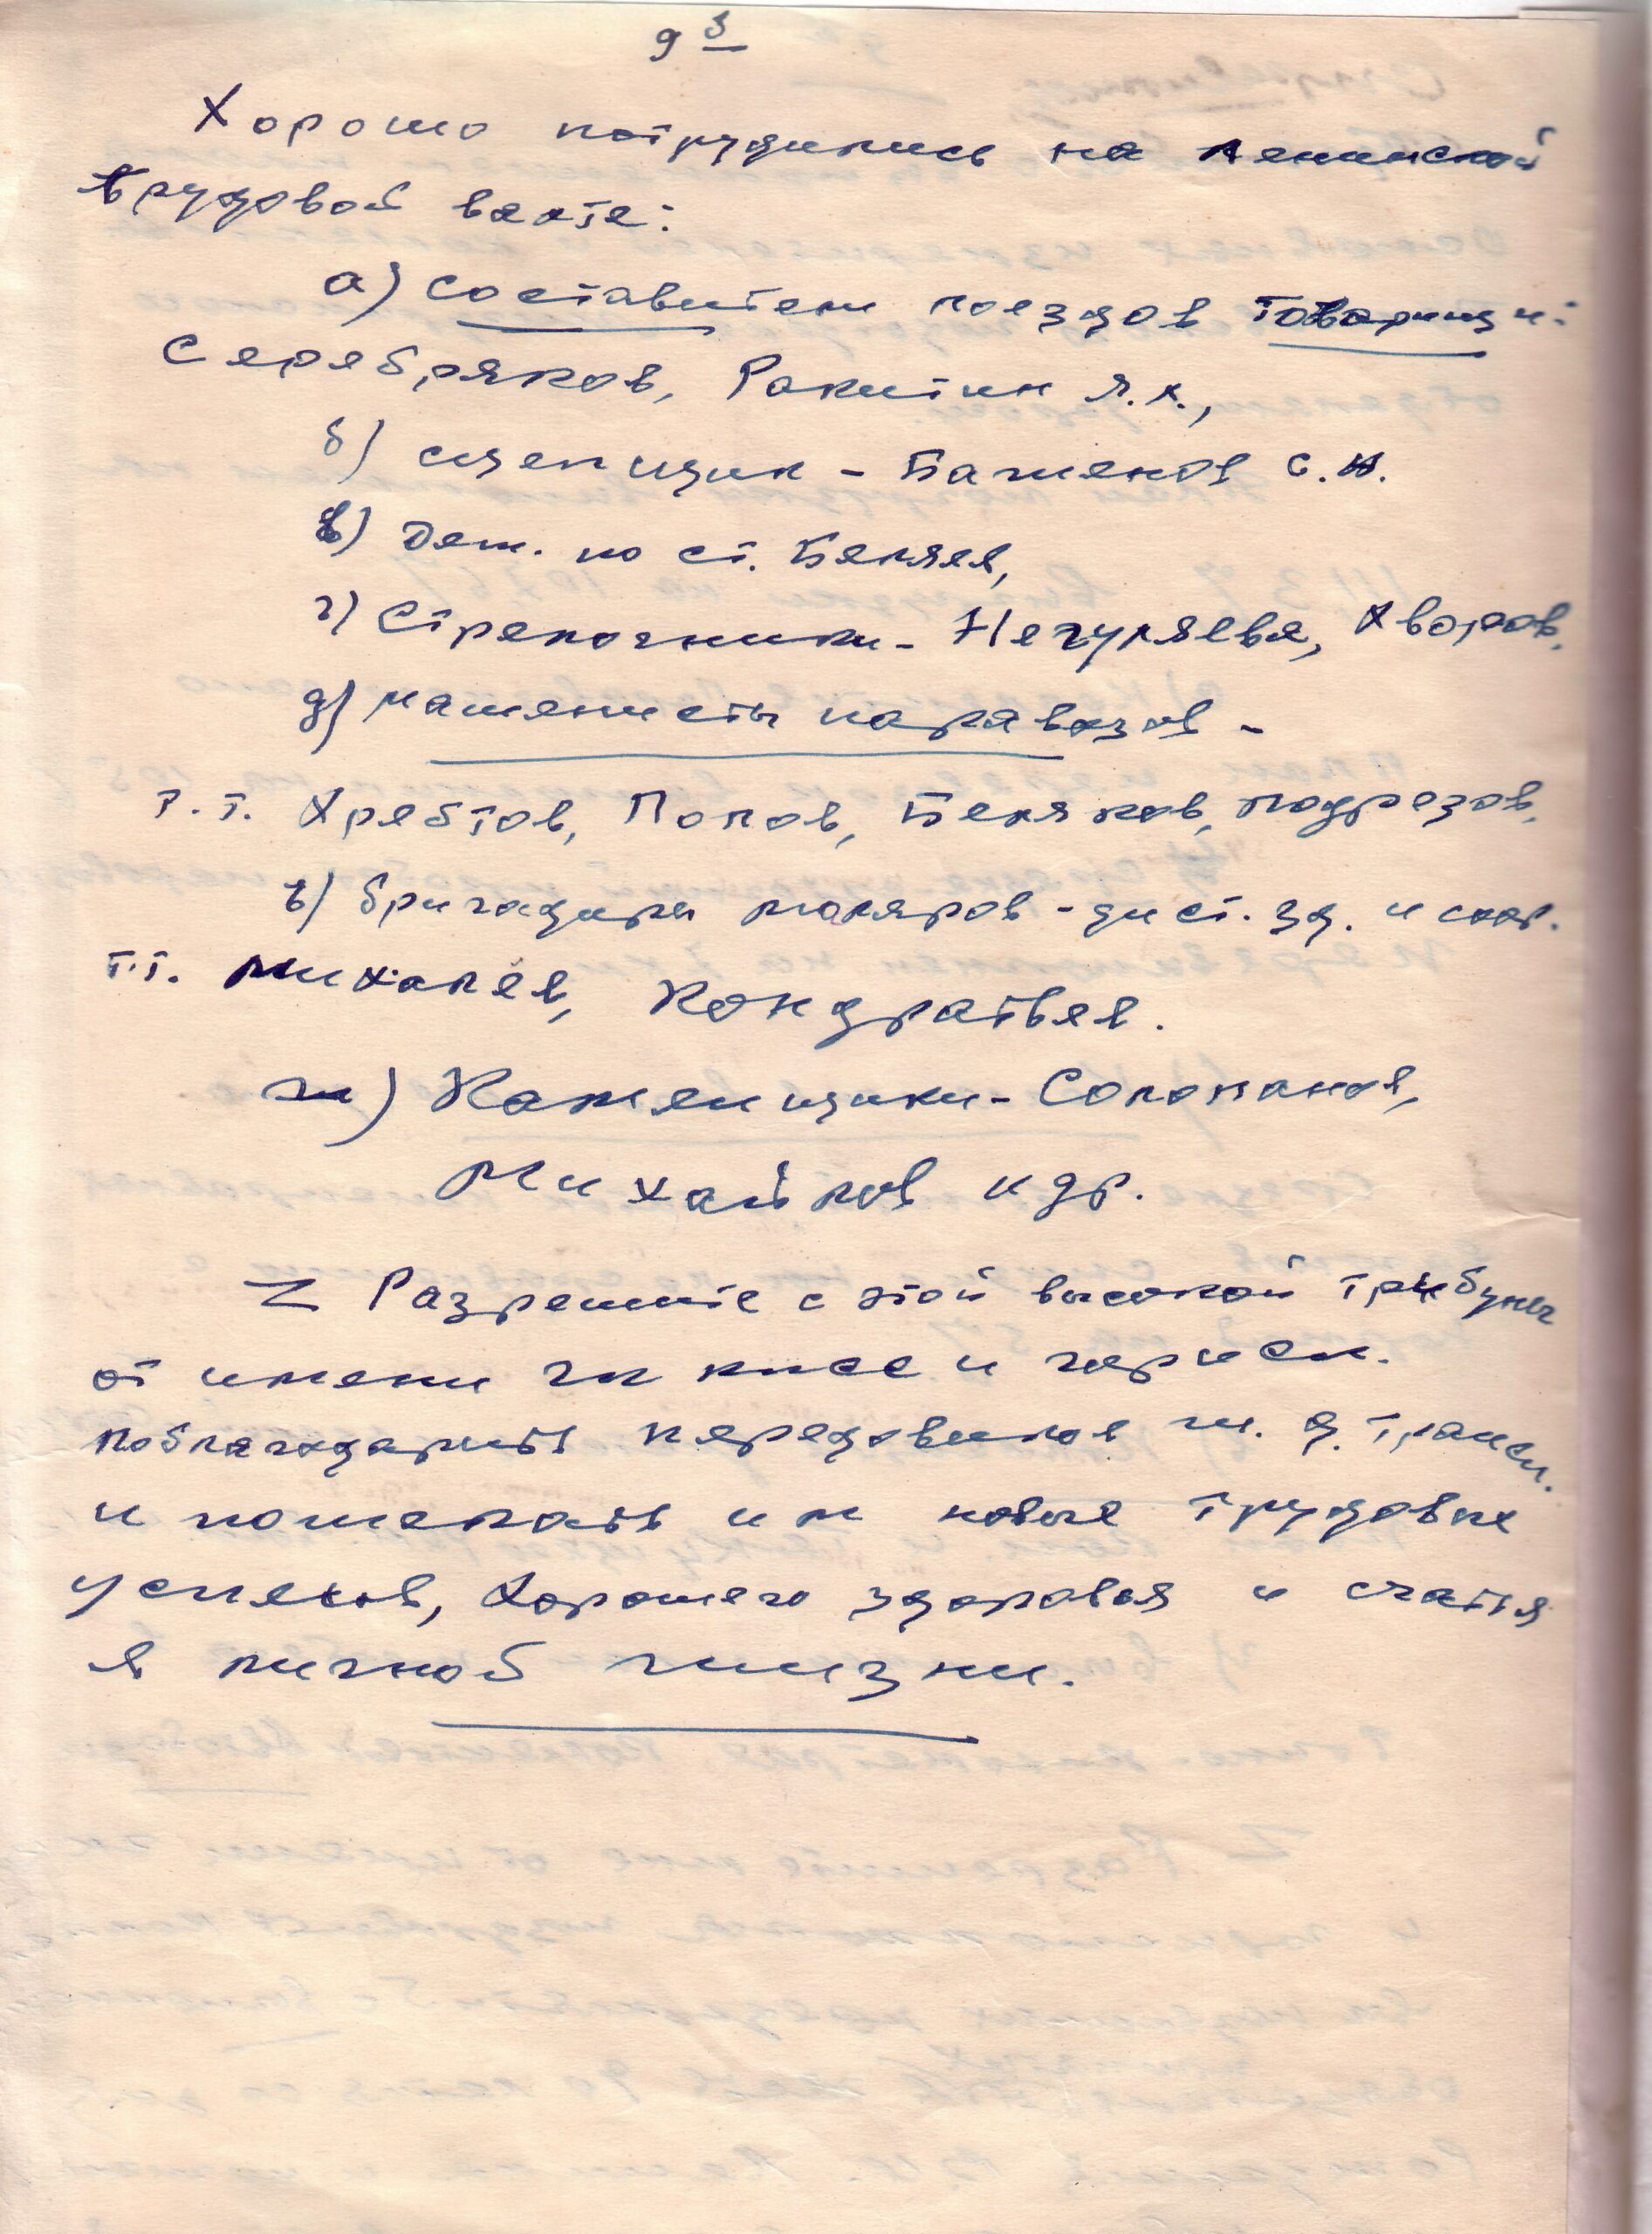 9 3
Хорошо потрудились на Ленинской
трудовой вахте:
а) составители поездов товарищи:
Серебряков, Ракитин
б) сцепщик – Баженов С.Н.
в) Деж. по ст. Беляев,
г) Стрелочники – Негуляева, Хворов,
д) машинисты паровозов –
т.т. Хребтов, Попов, Беляков, Подрезов,
е) бригадиры маляров – дист. зд. и соор.
т.т. Михалев, Кондратьев.
ж) Каменщики – Соломанов,
Михайлов и др.
Z Разрешите с этой высокой трибуны
от имени ГК КПСС и горисп.
поблагодарить передовиков ж. д. трансп.
и пожелать им новые трудовые
успехов, хорошего здоровья и счатья
в личной жизни.